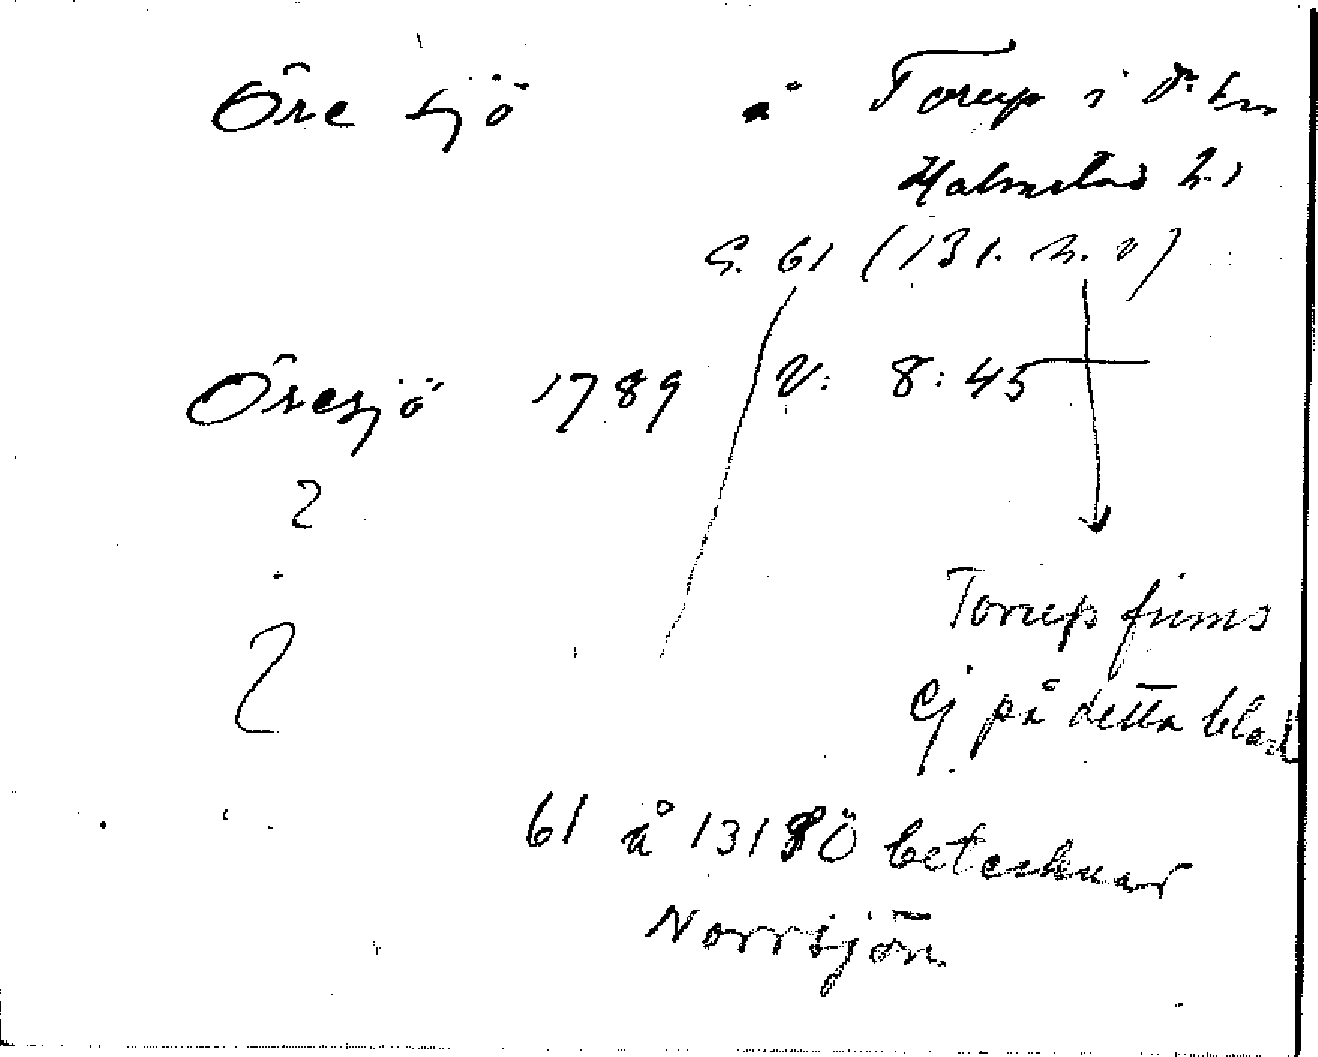 Öresjö å Torup i
Halmstad h.
S. 61 (131.
Öresjö 1789 V: 8:45
?
?
Torup finns
ej på detta blad
61 å 131 SÖ betecknar
Norrsjön